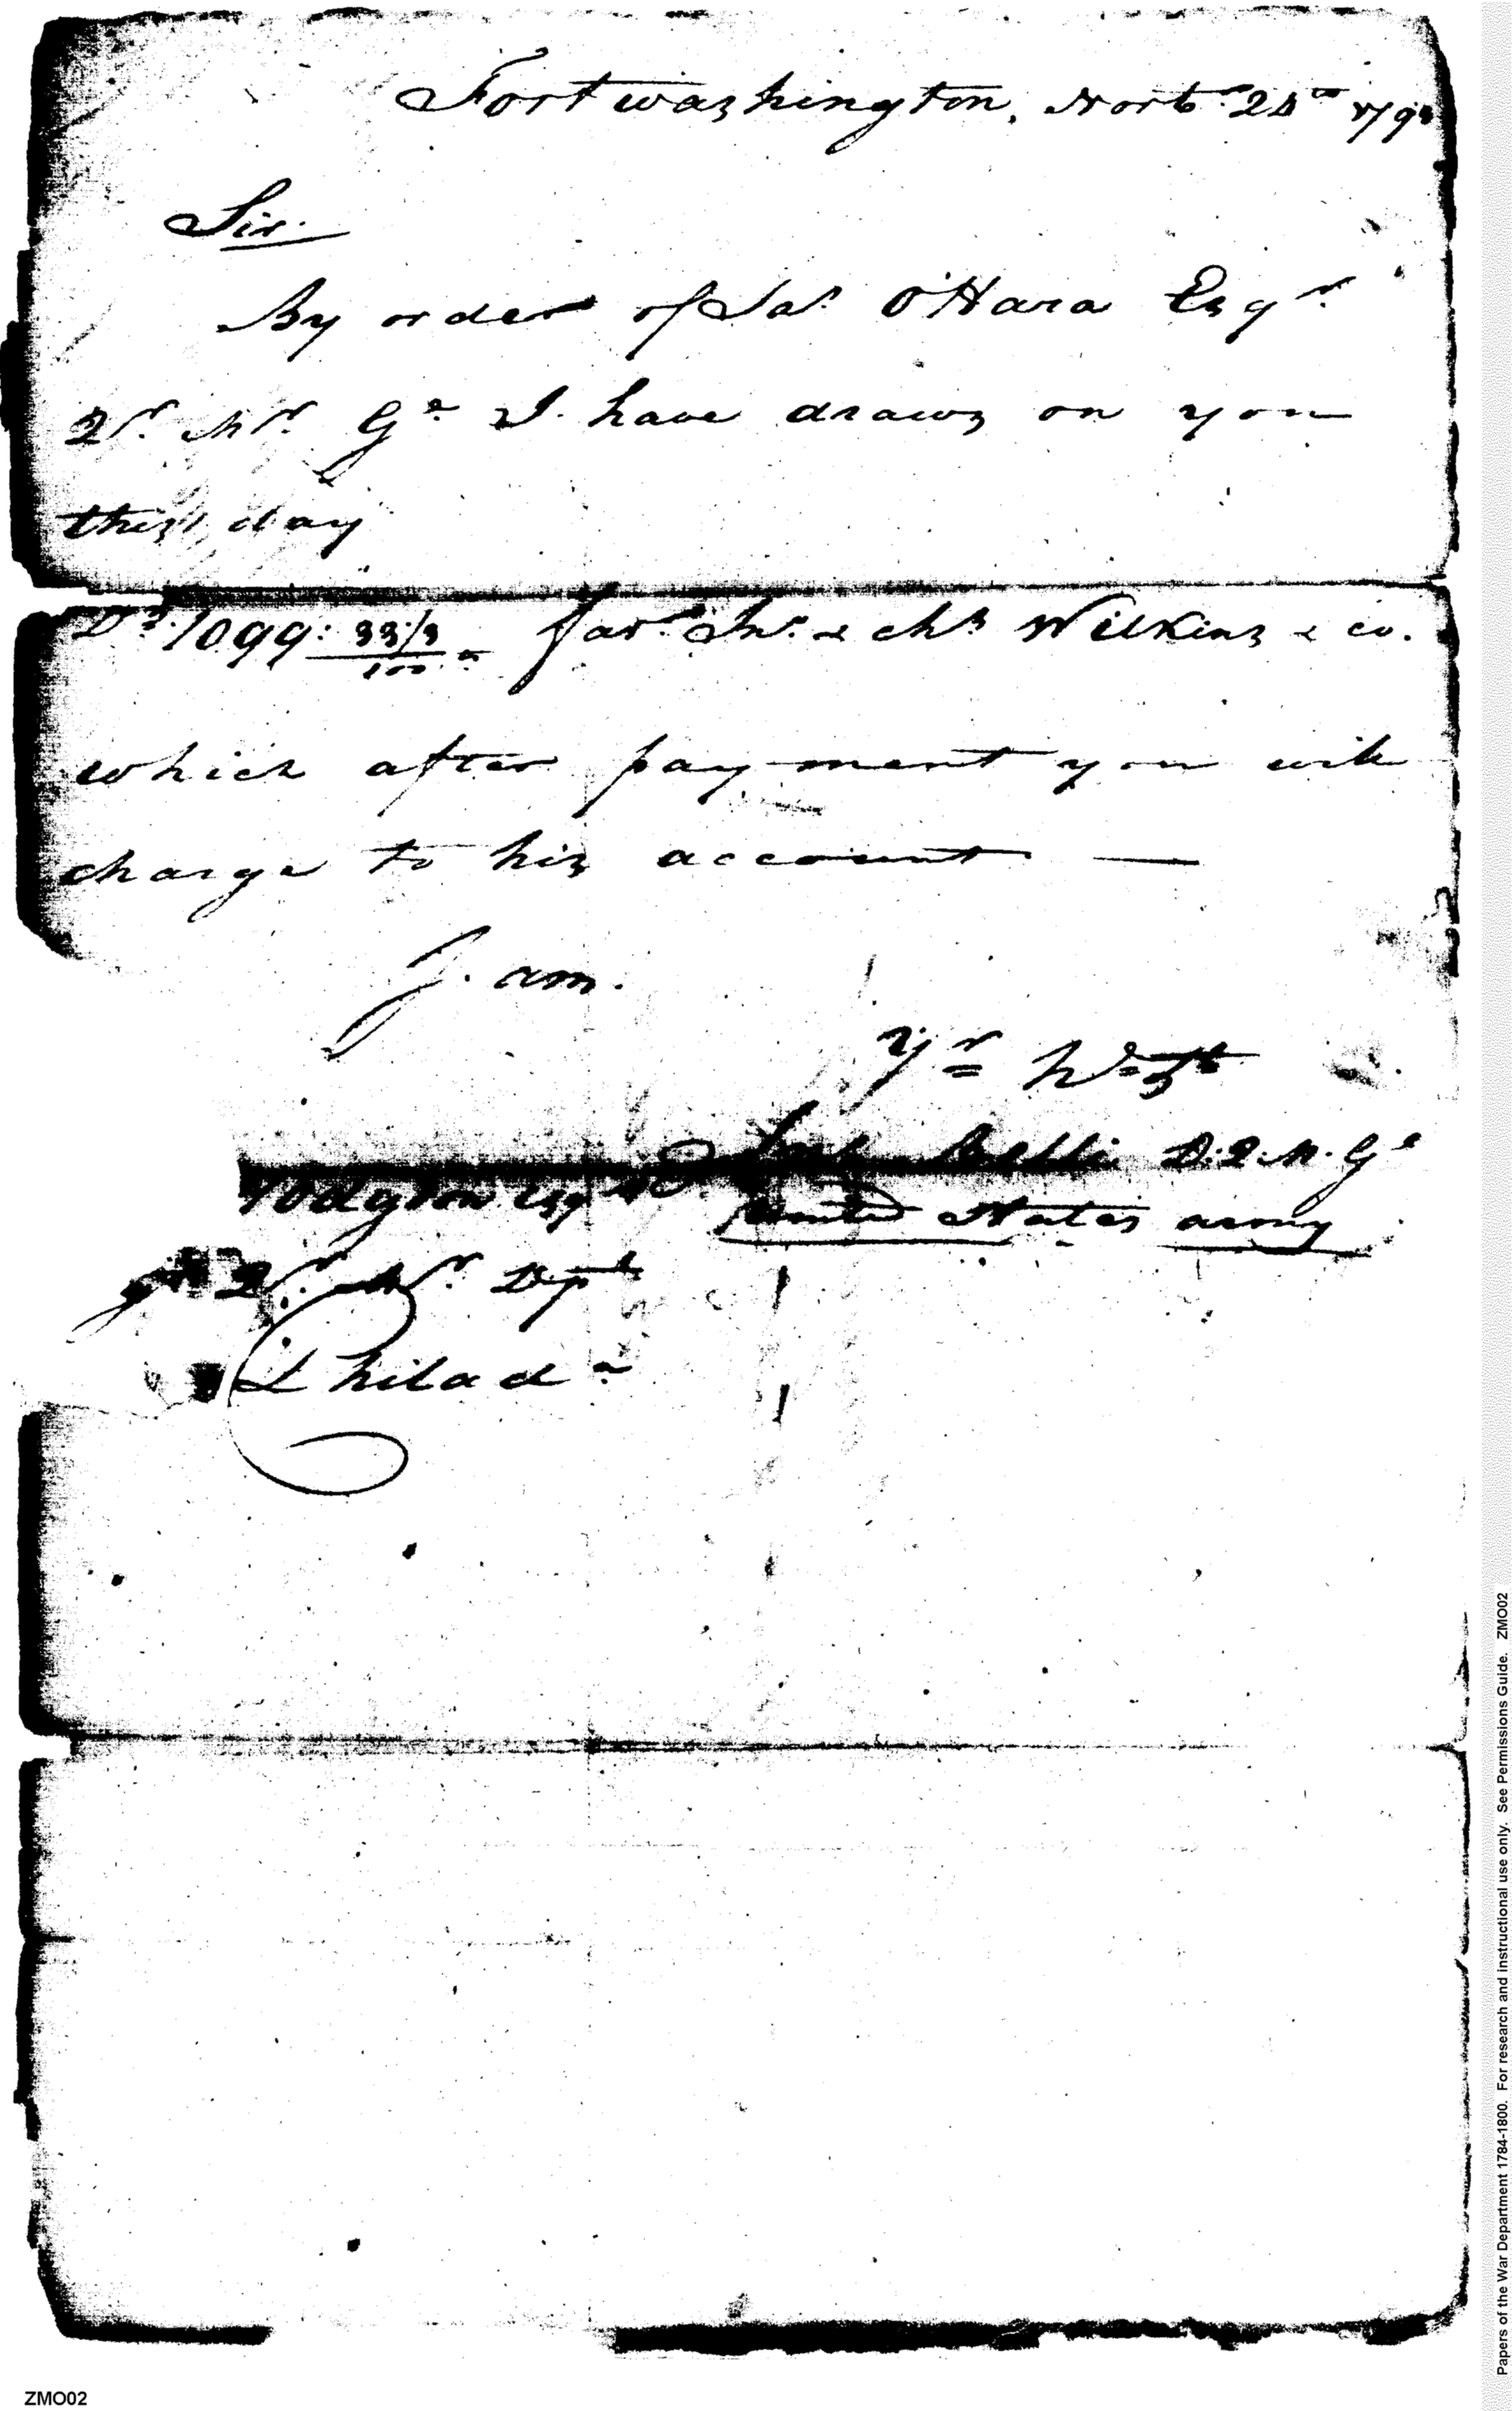 Fort washington, Novb.r 24th 179
Sir.
By order of Jas. O'Hara Esqr.
Qr. Mr. Gl. I have drawn on you
this day
Drs. 1099: 33/3/100 favr. Jno. & Chs Wilkins & co.
which after payment you will
charge to his account —
I am.
yr hble St
John Belli D.Q.M.Gl
Hodgdon Esqr United States army
Qr. Mr. Dept
Philada
Papers of the War Department 1784-1800. For research and instructional use only. See Permissions Guide. ZMO02
ZMO02